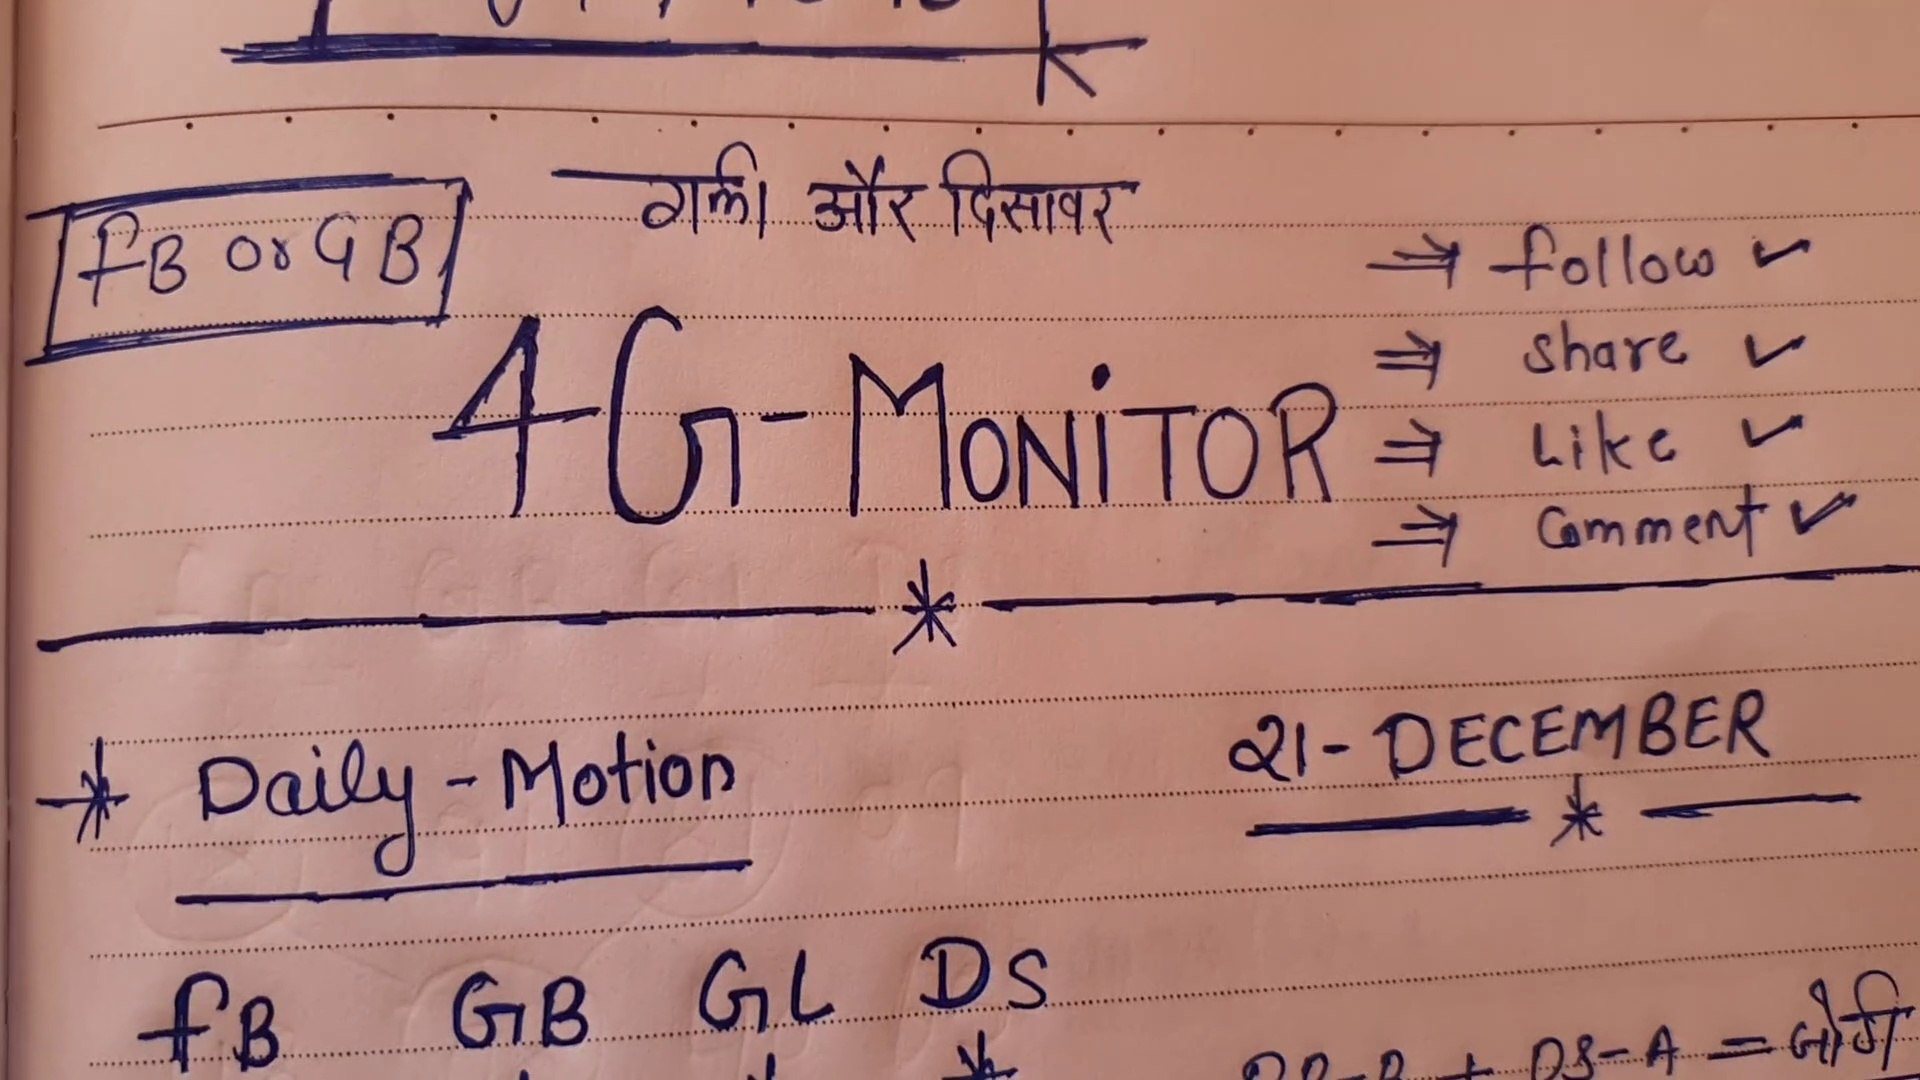 गली और दिसावर
FB or GB
4G-MONiTOR
⇒ follow ✓
⇒ share ✓
⇒ Like ✓
⇒ Comment ✓
* Daily-Motion
21-DECEMBER
FB GB GL DS
+ DS-A =